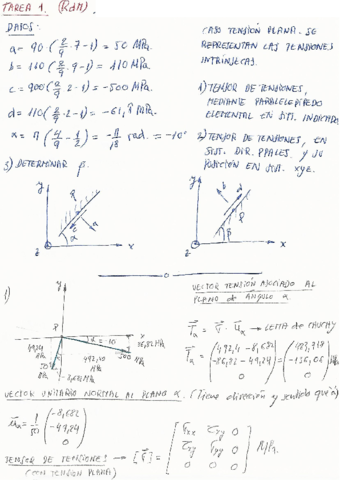 TAREA 1. (RdM)
DATOS:
a = 90 (8/9 · 7 - 1) = 50 MPa.
c = 900 (8/9 · 2 - 1) = -500 MPa.
d = 110 (8/9 · 2 - 1) = -61,1 MPa.
α = π (4/9 - 1/2) = -π/18 rad. = -10°
3) DETERMINAR β.
CASO TENSIÓN PLANA. SE
REPRESENTAN LAS TENSIONES
INTRÍNSECAS.
1) TENSOR DE TENSIONES,
MEDIANTE PARALELEPÍPEDO
ELEMENTAL EN SIT. INDICADA
2) TENSOR DE TENSIONES, EN
SIST. DIR. PPALES Y SU
POSICIÓN EN SIST. xyz.
y
P
a
α
z
x
y
b
d
P
β
z
x
1)
y
P
α = 10
x
86,82 MPa
49,24
MPa
50
MPa
-8,682 MPa
492,40
MPa
500
MPa
VECTOR TENSIÓN ASOCIADO AL
PLANO de ANGULO α
→ LEMA DE CAUCHY
492,4 - 8,682
-86,82 - 49,24
0
-136,06
0
MPa
VECTOR UNITARIO NORMAL AL PLANO α. (Tiene dirección y sentido que a)
1/50
-8,682
-49,24
0
TENSOR DE TENSIONES →
(CON TENSIÓN PLANA)
σxx τxy 0
τxy σyy 0
0 0 0
MPa.